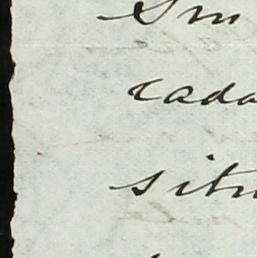 Sm
cada
situ